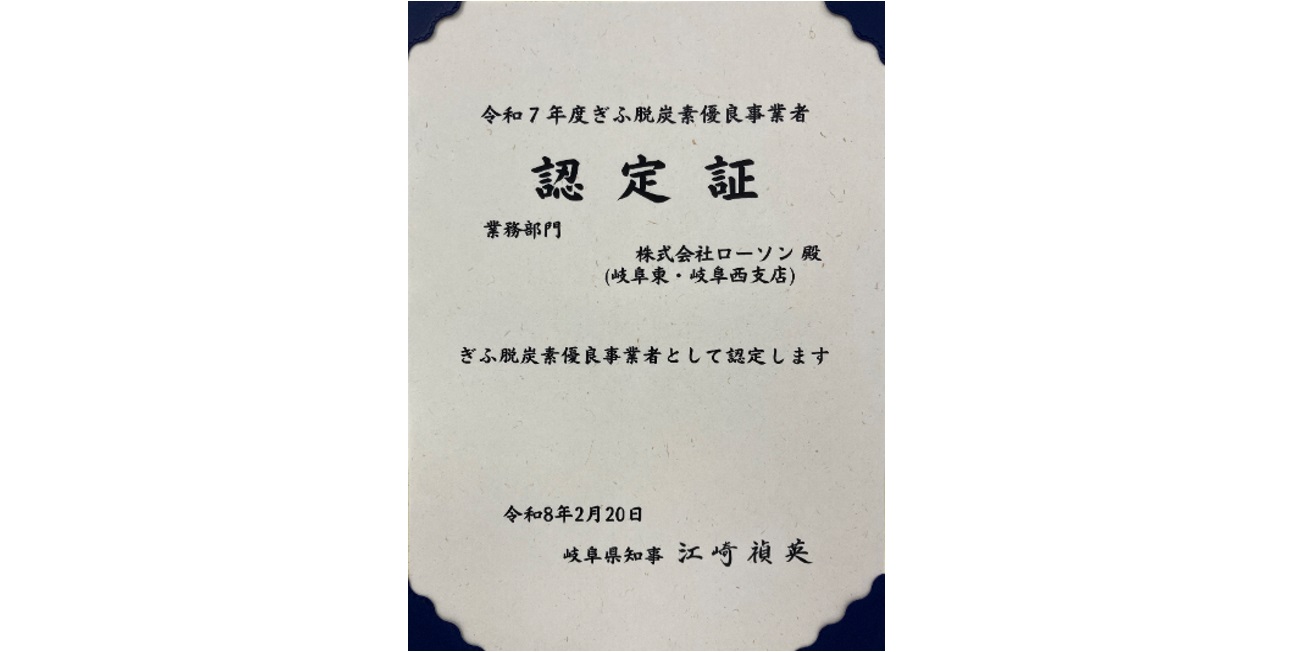 令和７年度ぎふ脱炭素優良事業者
認定証
業務部門
株式会社ローソン 殿
(岐阜東・岐阜西支店)
ぎふ脱炭素優良事業者として認定します
令和8年2月20日
岐阜県知事 江崎禎英